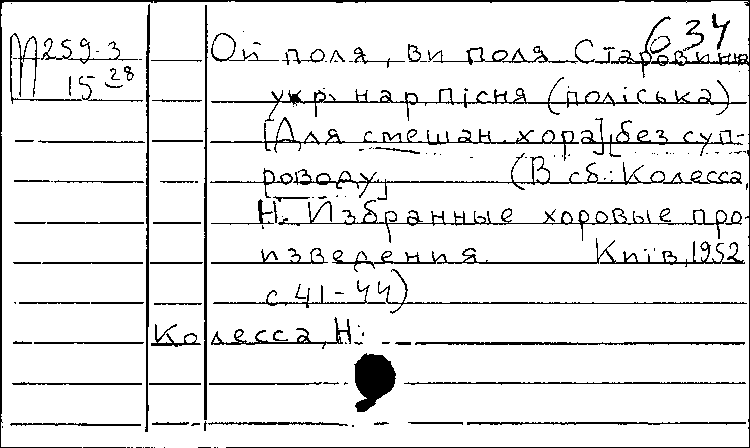 634
М259-3
15 28
Ой поля, ви поля Старовинна
укр. нар. пісня (поліська)
[Для смешан. хора], без суп-
роводу, (В сб.: Колесса,
Н. Избранные хоровые про-
изведения. Київ, 1952
с. 41-44)
Колесса, Н.